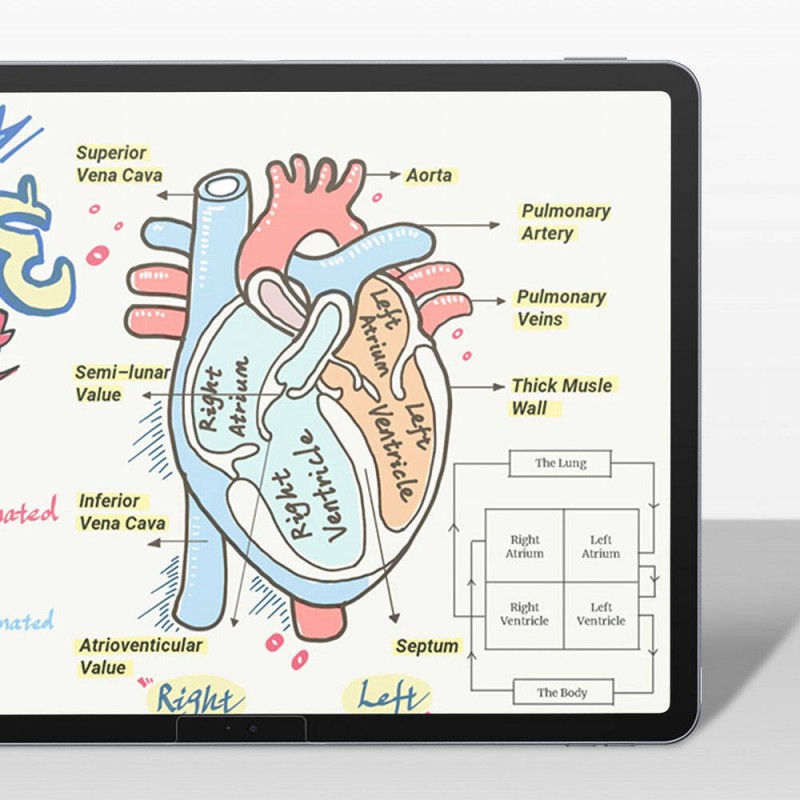 Superior
Vena Cava
Aorta
Pulmonary
Artery
Pulmonary
Veins
Semi-lunar
Value
Thick Musle
Wall
Inferior
Vena Cava
Atrioventicular
Value
Septum
Right
Atrium
Left
Atrium
Right
Ventricle
Left
Ventricle
Right
Left
The Lung
Right
Atrium
Left
Atrium
Right
Ventricle
Left
Ventricle
The Body